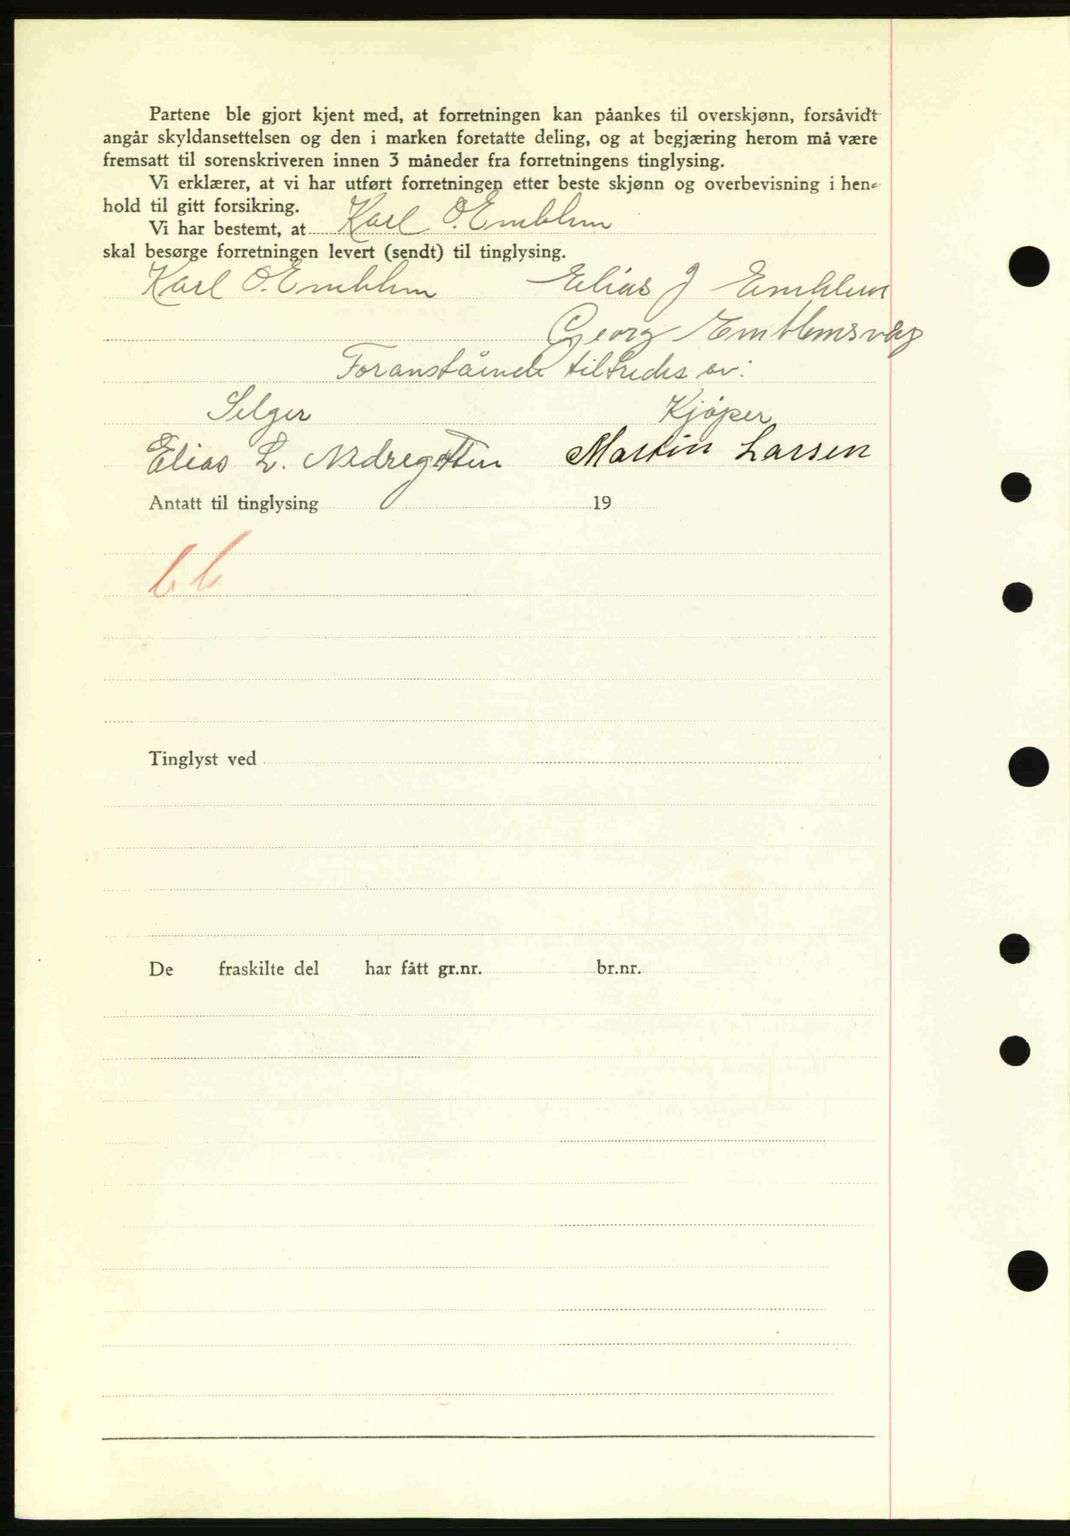 Partene ble gjort kjent med, at forretningen kan påankes til overskjønn, forsåvidt
angår skyldansettelsen og den i marken foretatte deling, og at begjæring herom må være
fremsatt til sorenskriveren innen 3 måneder fra forretningens tinglysing.
Vi erklærer, at vi har utført forretningen etter beste skjønn og overbevisning i hen-
hold til gitt forsikring.
Vi har bestemt, at Karl O. Emblem
skal besørge forretningen levert (sendt) til tinglysing.
Karl O. Emblem Elias J Emblem
Georg Emblemsvåg
Foranstående tiltredes av:
Selger Kjøper
Elias L. Nedregotten Martin Larsen
Antatt til tinglysing 19
Tinglyst ved
De fraskilte del har fått gr.nr. br.nr.